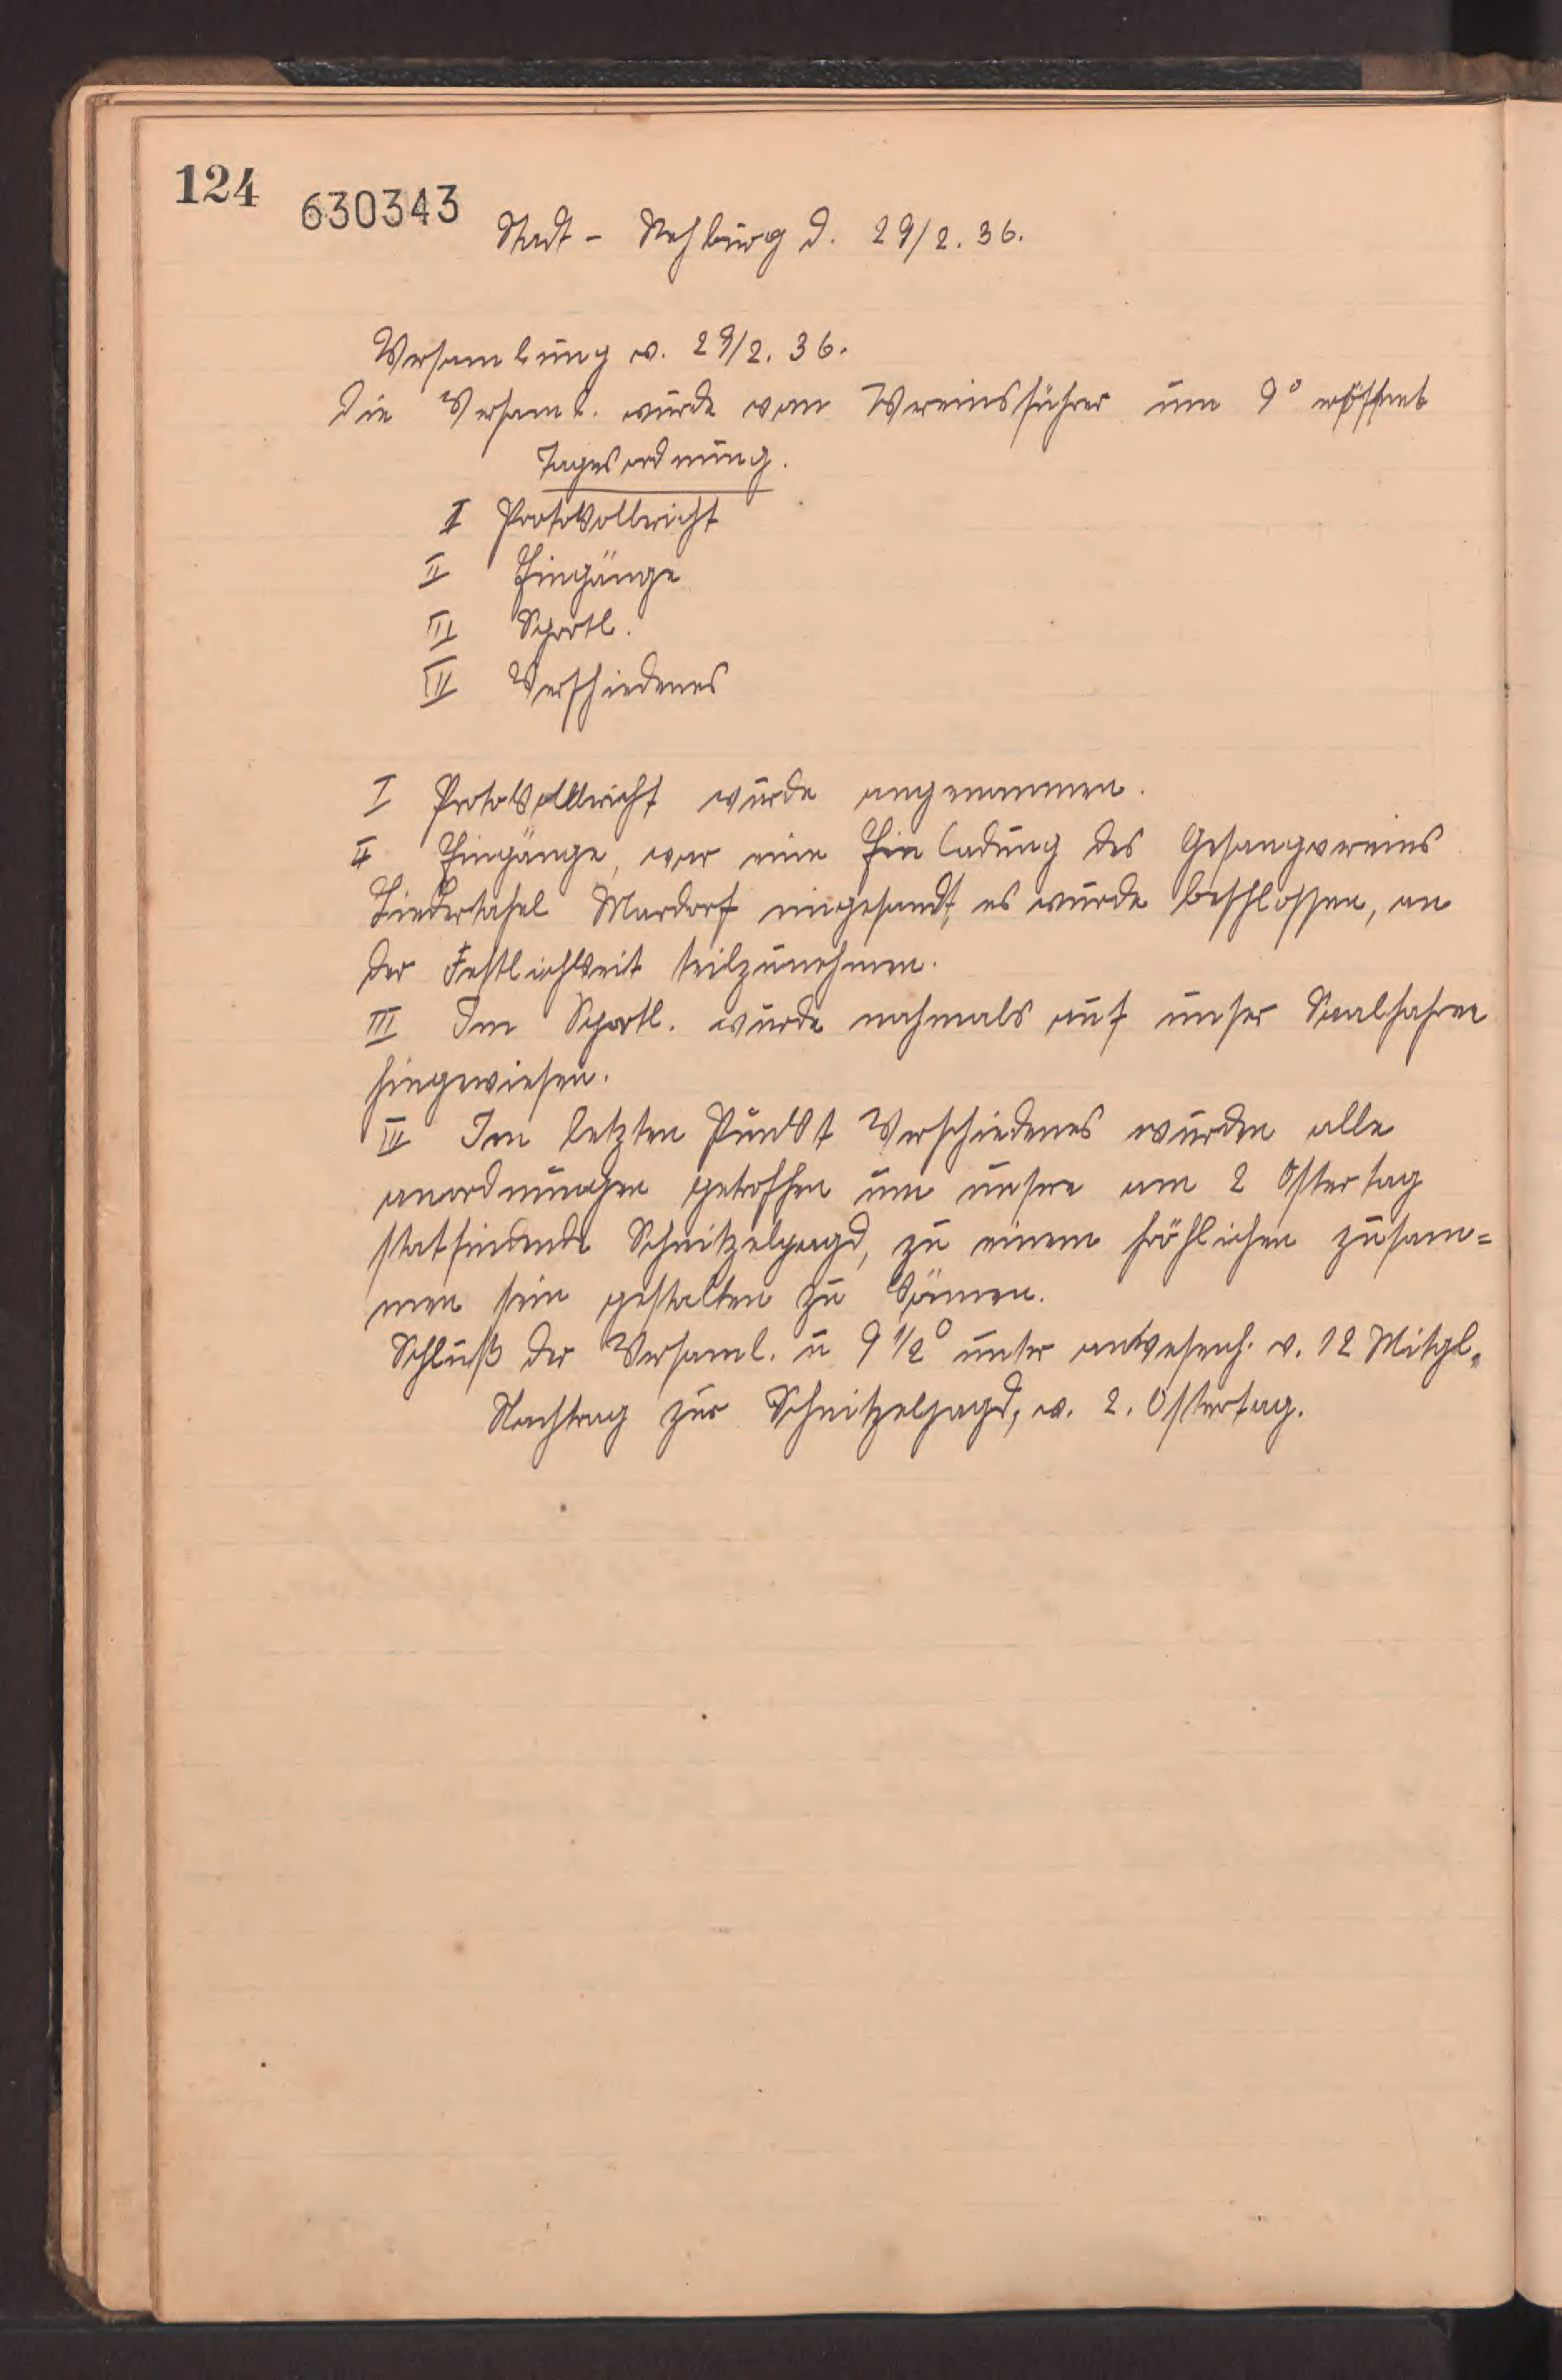 124
630343
Stadt - Rehburg d. 29/2. 36.
Versamlung v. 29/2. 36.
Die Versaml. wurde vom Vereinsführer um 9° eröffnet
Tagesordnung.
I Protokollbericht
II Eingänge
III Sportl.
IV Verschiedenes
I Protokollbericht wurde angenommen.
II Eingänge, war eine Einladung des Gesangvereins
Liedertafel Mardorf eingesandt, es wurde beschlossen, an
der Festlichkeit teilzunehmen.
III Im Sportl. wurde nochmals auf unser Saalfahren
hingewiesen.
IV Im letzten Punkt Verschiedenes wurden alle
anordnungen getroffen um unsere am 2 Ostertag
statfindende Schnitzeljagd, zu einem fröhlichen zusam=
men sein gestalten zu können.
Schluß der Versaml. u 9 1/2° unter anwesenh. v. 12 Mitgl.
Nachtrag zur Schnitzeljagd, v. 2. Ostertag.